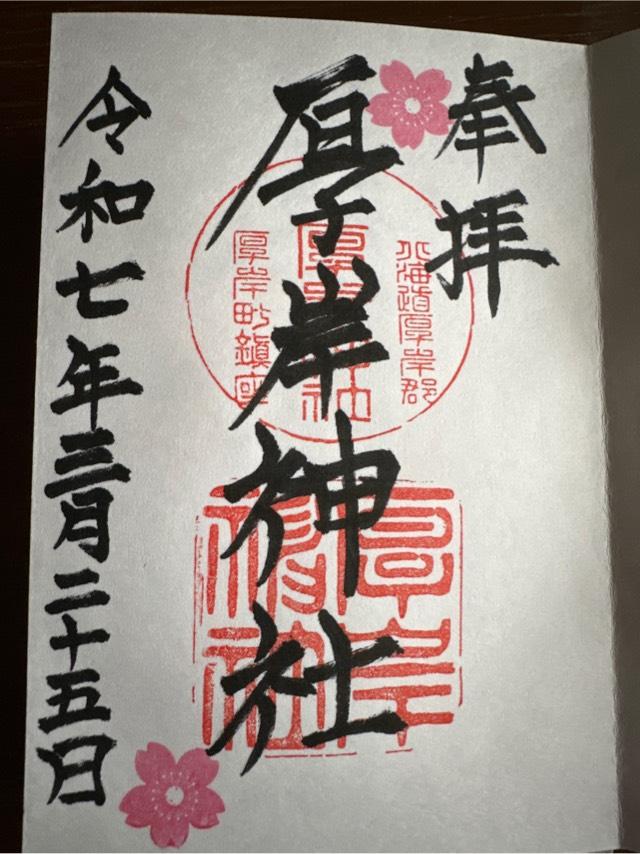 奉拝
北海道厚岸郡
厚岸神社
厚岸町鎮座
厚岸神社
厚岸神社
令和七年三月二十五日